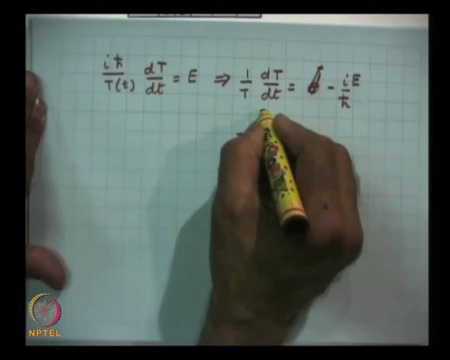 iħ/T(t) dT/dt = E ⇒ 1/T dT/dt = - iE/ħ
NPTEL